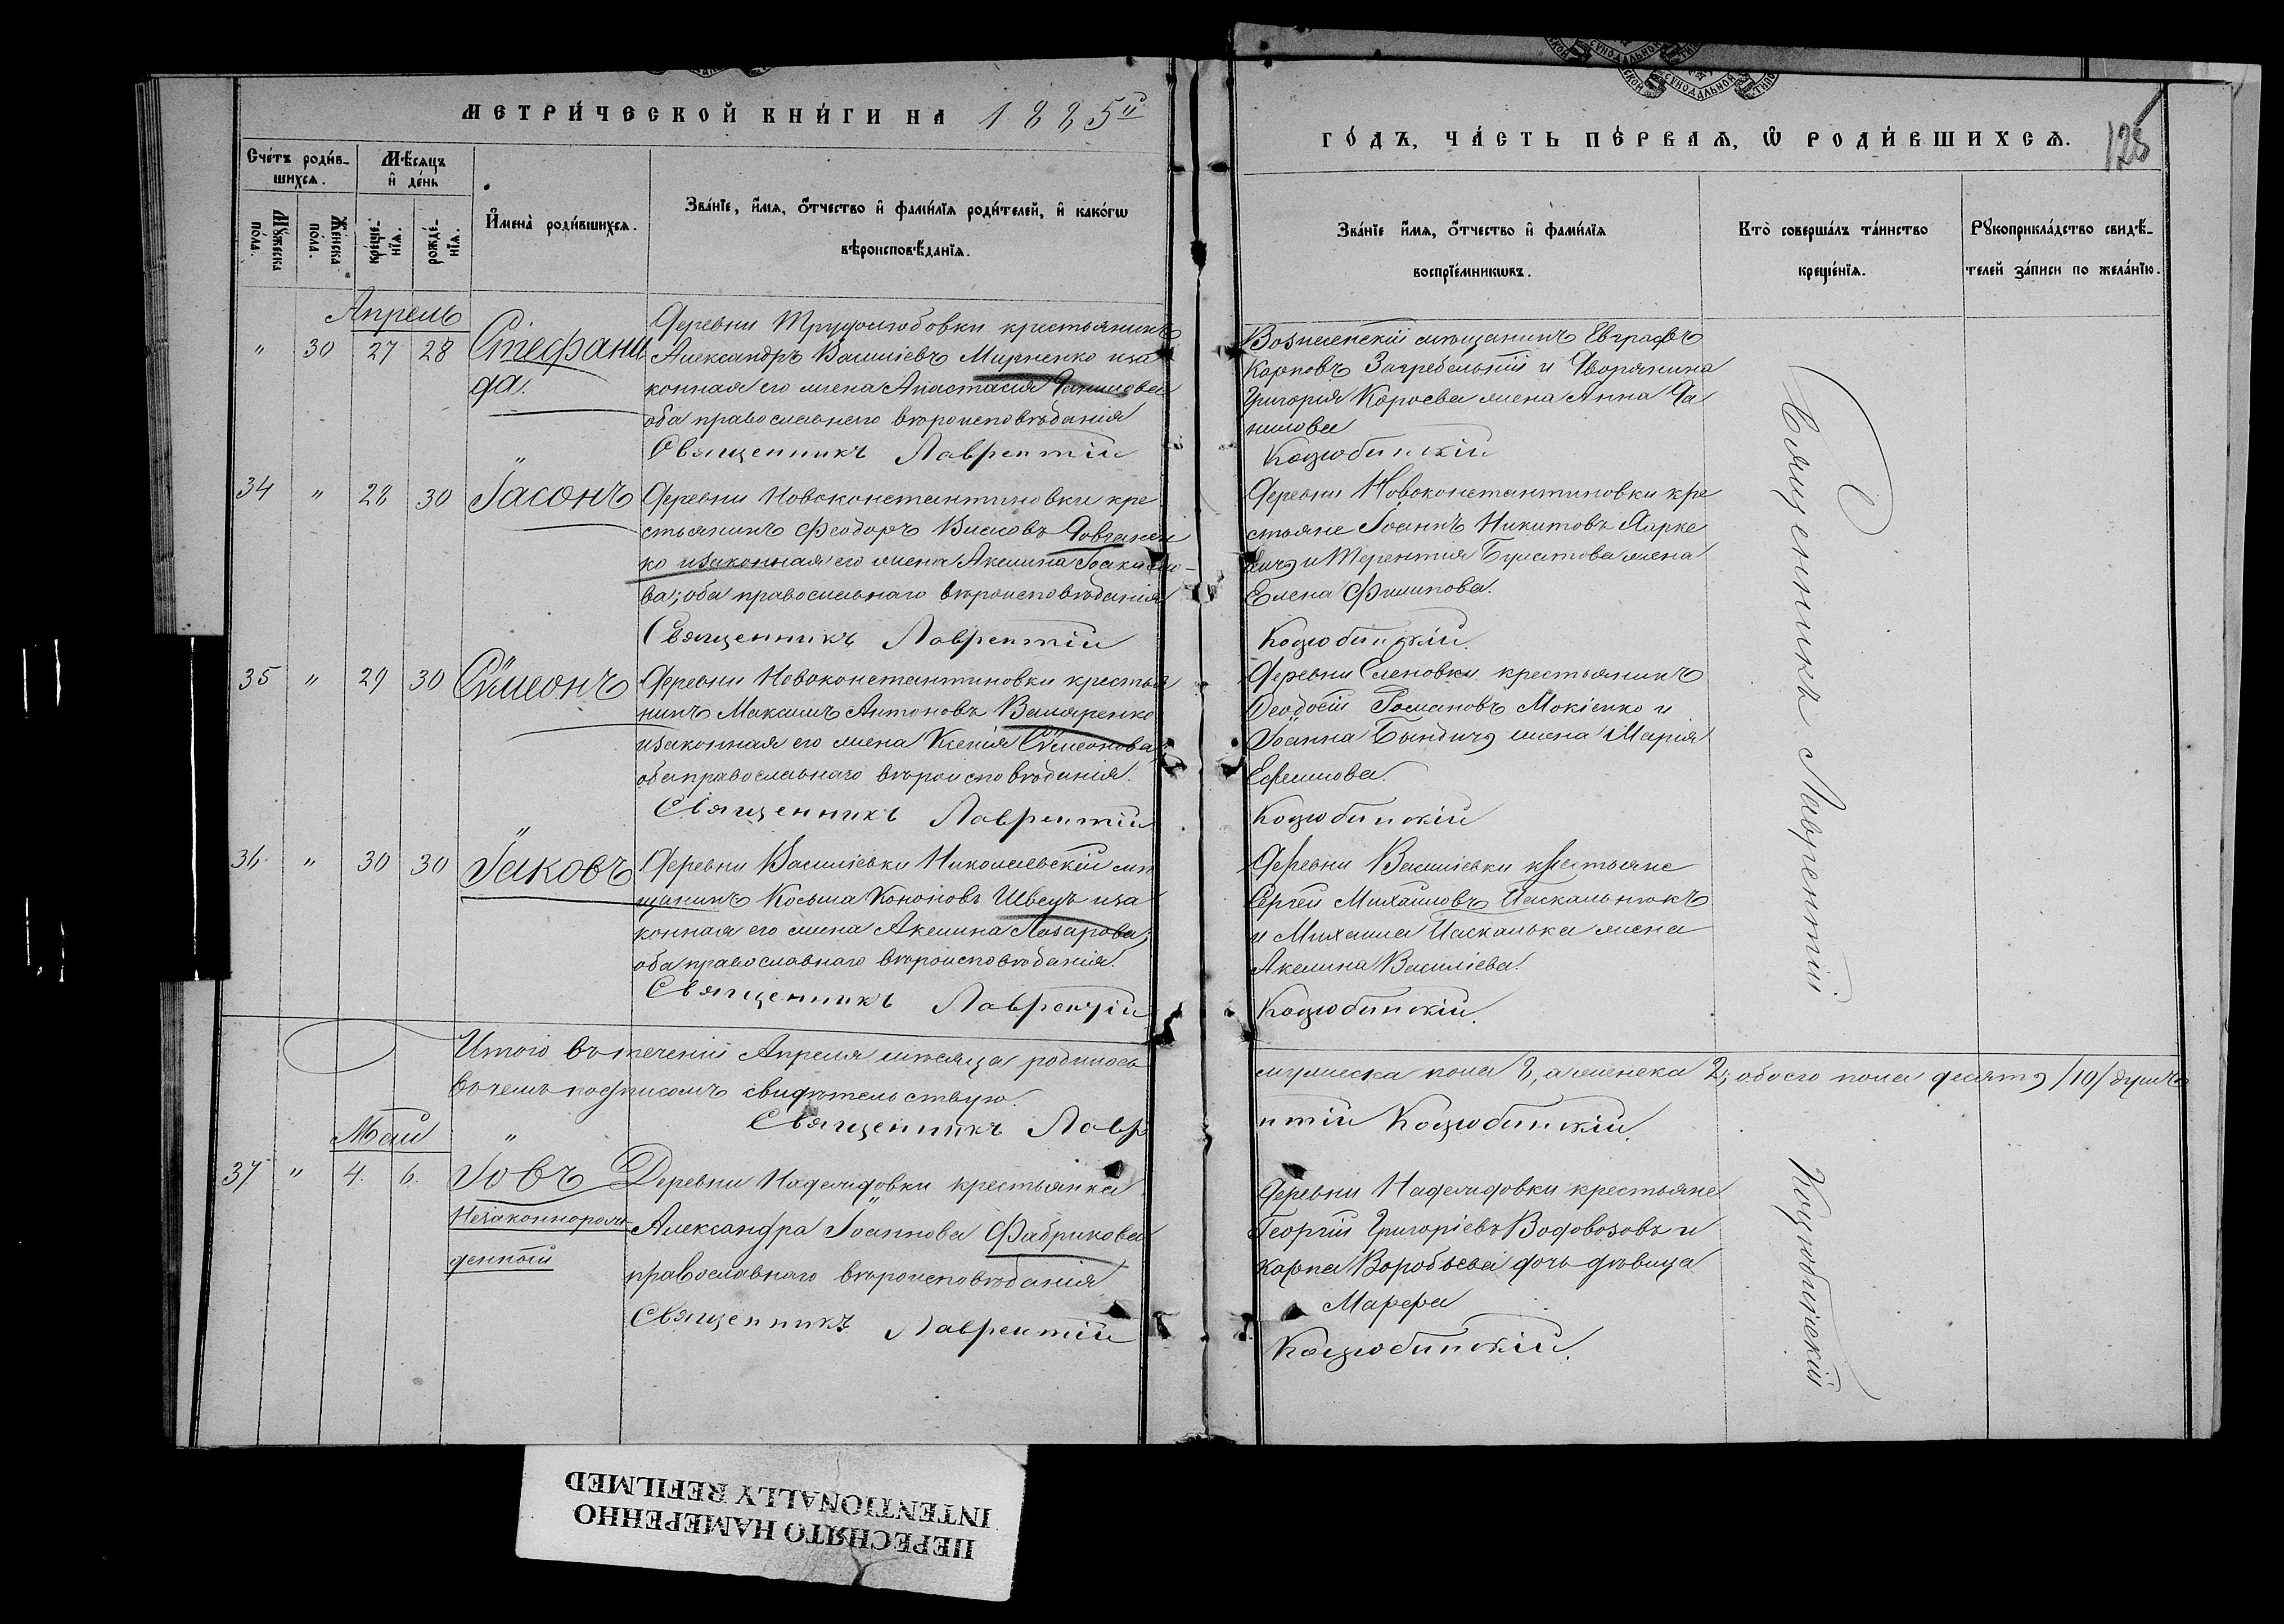 МЕТРИ́ЧЕСКОЙ КНИ́ГИ НА 1885й
ГО́ДЪ, ЧА́СТЬ ПЕ́РВАѦ, Ѡ РОДИ́ВШИХСѦ.
125
Сче́тъ роди́в-
шихсѧ.
Мѣ́сяцъ
и҆ де́нь
Мꙋ́жеска
по́ла.
Же́нска
по́ла.
креще́-
нїѧ.
рожде́-
нїѧ.
И҆мена̀ роди́вшихсѧ.
Зва́нїе, и҆́мѧ, ѻ҆́тчество и҆ фами́лїѧ роди́телей, и҆ како́гѡ
вѣроисповѣ́данїѧ.
Зва́нїе и҆́мѧ, ѻ҆́тчество и҆ фами́лїѧ
воспрїе́мникѡвъ.
Кто̀ соверша́лъ та́инство
креще́нїѧ.
Рꙋкоприкла́дство свидѣ́-
телей за́писи по жела́нїю.
Апрель
" 30 27 28 Стефани
да.
Деревни Трудолюбовки крестьянинъ
Александръ Василіевъ Мирненко и за
конная его жена Анастасія Данилова
оба православнаго вѣроисповѣданія
Священникъ Лаврентій
Вознесенскій мѣщанинъ Евграфъ
Карповъ Загребельній и Дворянина
Григорія Короева жена Анна Да
нилова
Коцюбинскій
34 " 28 30 Іасонъ
Деревни Новоконстантиновки кре
стьянинъ Феодоръ Власовъ Довганен
ко и законная его жена Акелина Іоакимо-
ва; оба православнаго вѣроисповѣданія
Священникъ Лаврентій
Деревни Новоконстантиновки кре
стьяне Іоаннъ Никитовъ
и Терентия Булатова жена
Елена Филипова.
Коцюбинскій.
35 " 29 30 Сѵмеонъ
Деревни Новоконстантиновки крестья
нинъ Максимъ Антоновъ Валяренко
и законная его жена Ксенія Сѵмеонова
оба православнаго вѣроисповѣданія.
Священникъ Лаврентій
Деревни Еленовки крестьянинъ
Феодосій Романовъ Мокіенко и
Іоанна жена Марія
Ефимова.
Коцюбинскій
36. " 30 30 Іаковъ
Деревни Василіевки Николаевскій мѣ
щанинъ Косьма Кононовъ Швецъ и за
конная его жена Акелина Лазарова;
оба православнаго вѣроисповѣданія.
Священникъ Лаврентій
Деревни Василіевки крестьяне
Сергей Михаиловъ Паскальнюкъ
и Михаила Паскалька жена
Акелина Василіева.
Коцюбинскій.
Итого въ теченіи Апреля мѣсяца родилось
мужеска пола 8, а женска 2; обоего пола десять /10/ душъ
въ чемъ подписомъ свидѣтельствую.
Священникъ Лавре
нтій Коцюбинскій.
Май
37 " 4. 6. Іовъ
Незаконнорож
денный
Деревни Надеждовки крестьянка
Александра Іоаннова Фабрикова
православнаго вѣроисповѣданія
Священникъ Лаврентій
Деревни Надеждовки крестьяне
Георгій Григоріевъ Водовозовъ и
Карпа Воробьева дочь дѣвица
Марфа
Коцюбинскій.
Священникъ Лаврентій Коцюбинскій
ПЕРЕСНЯТО НАМЕРЕННО
INTENTIONALLY REFILMED